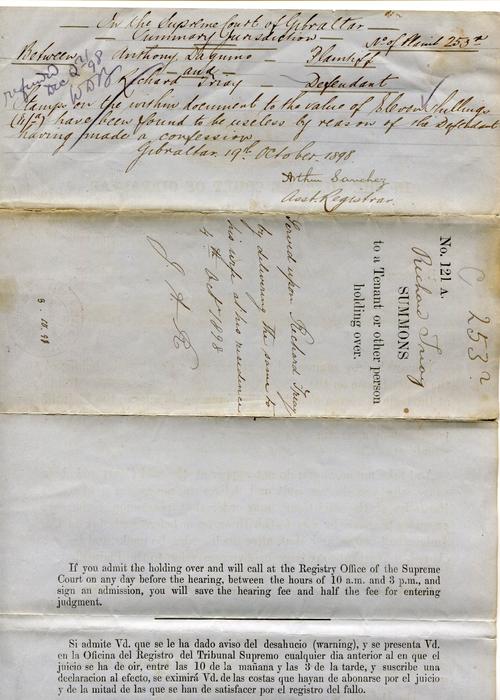 In the Supreme Court of Gibraltar
Summary Jurisdiction
No of Plaint 253a
Between Anthony Dagnino Plaintiff
and
Richard Triay Defendant
refunded
Oct 21/98
Stamps on the within document to the value of Eleven Shillings
(11/-) have been found to be useless by reason of the Defendant
having made a confession.
Gibraltar 19th October 1898.
Arthur Sanchez
Asst. Registrar.
C 253a
No. 121 A.
Richard Triay
SUMMONS
to a Tenant or other person
holding over.
Served upon Richard Triay
by delivering the same to
his wife at his residence
4th Oct 1898
J A R
If you admit the holding over and will call at the Registry Office of the Supreme
Court on any day before the hearing, between the hours of 10 a.m. and 3 p.m., and
sign an admission, you will save the hearing fee and half the fee for entering
judgment.
Si admite Vd. que se le ha dado aviso del desahucio (warning), y se presenta Vd.
en la Oficina del Registro del Tribunal Supremo cualquier dia anterior al en que el
juicio se ha de oir, entre las 10 de la mañana y las 3 de la tarde, y suscribe una
declaracion al efecto, se eximirá Vd. de las costas que hayan de abonarse por el juicio
y de la mitad de las que se han de satisfacer por el registro del fallo.